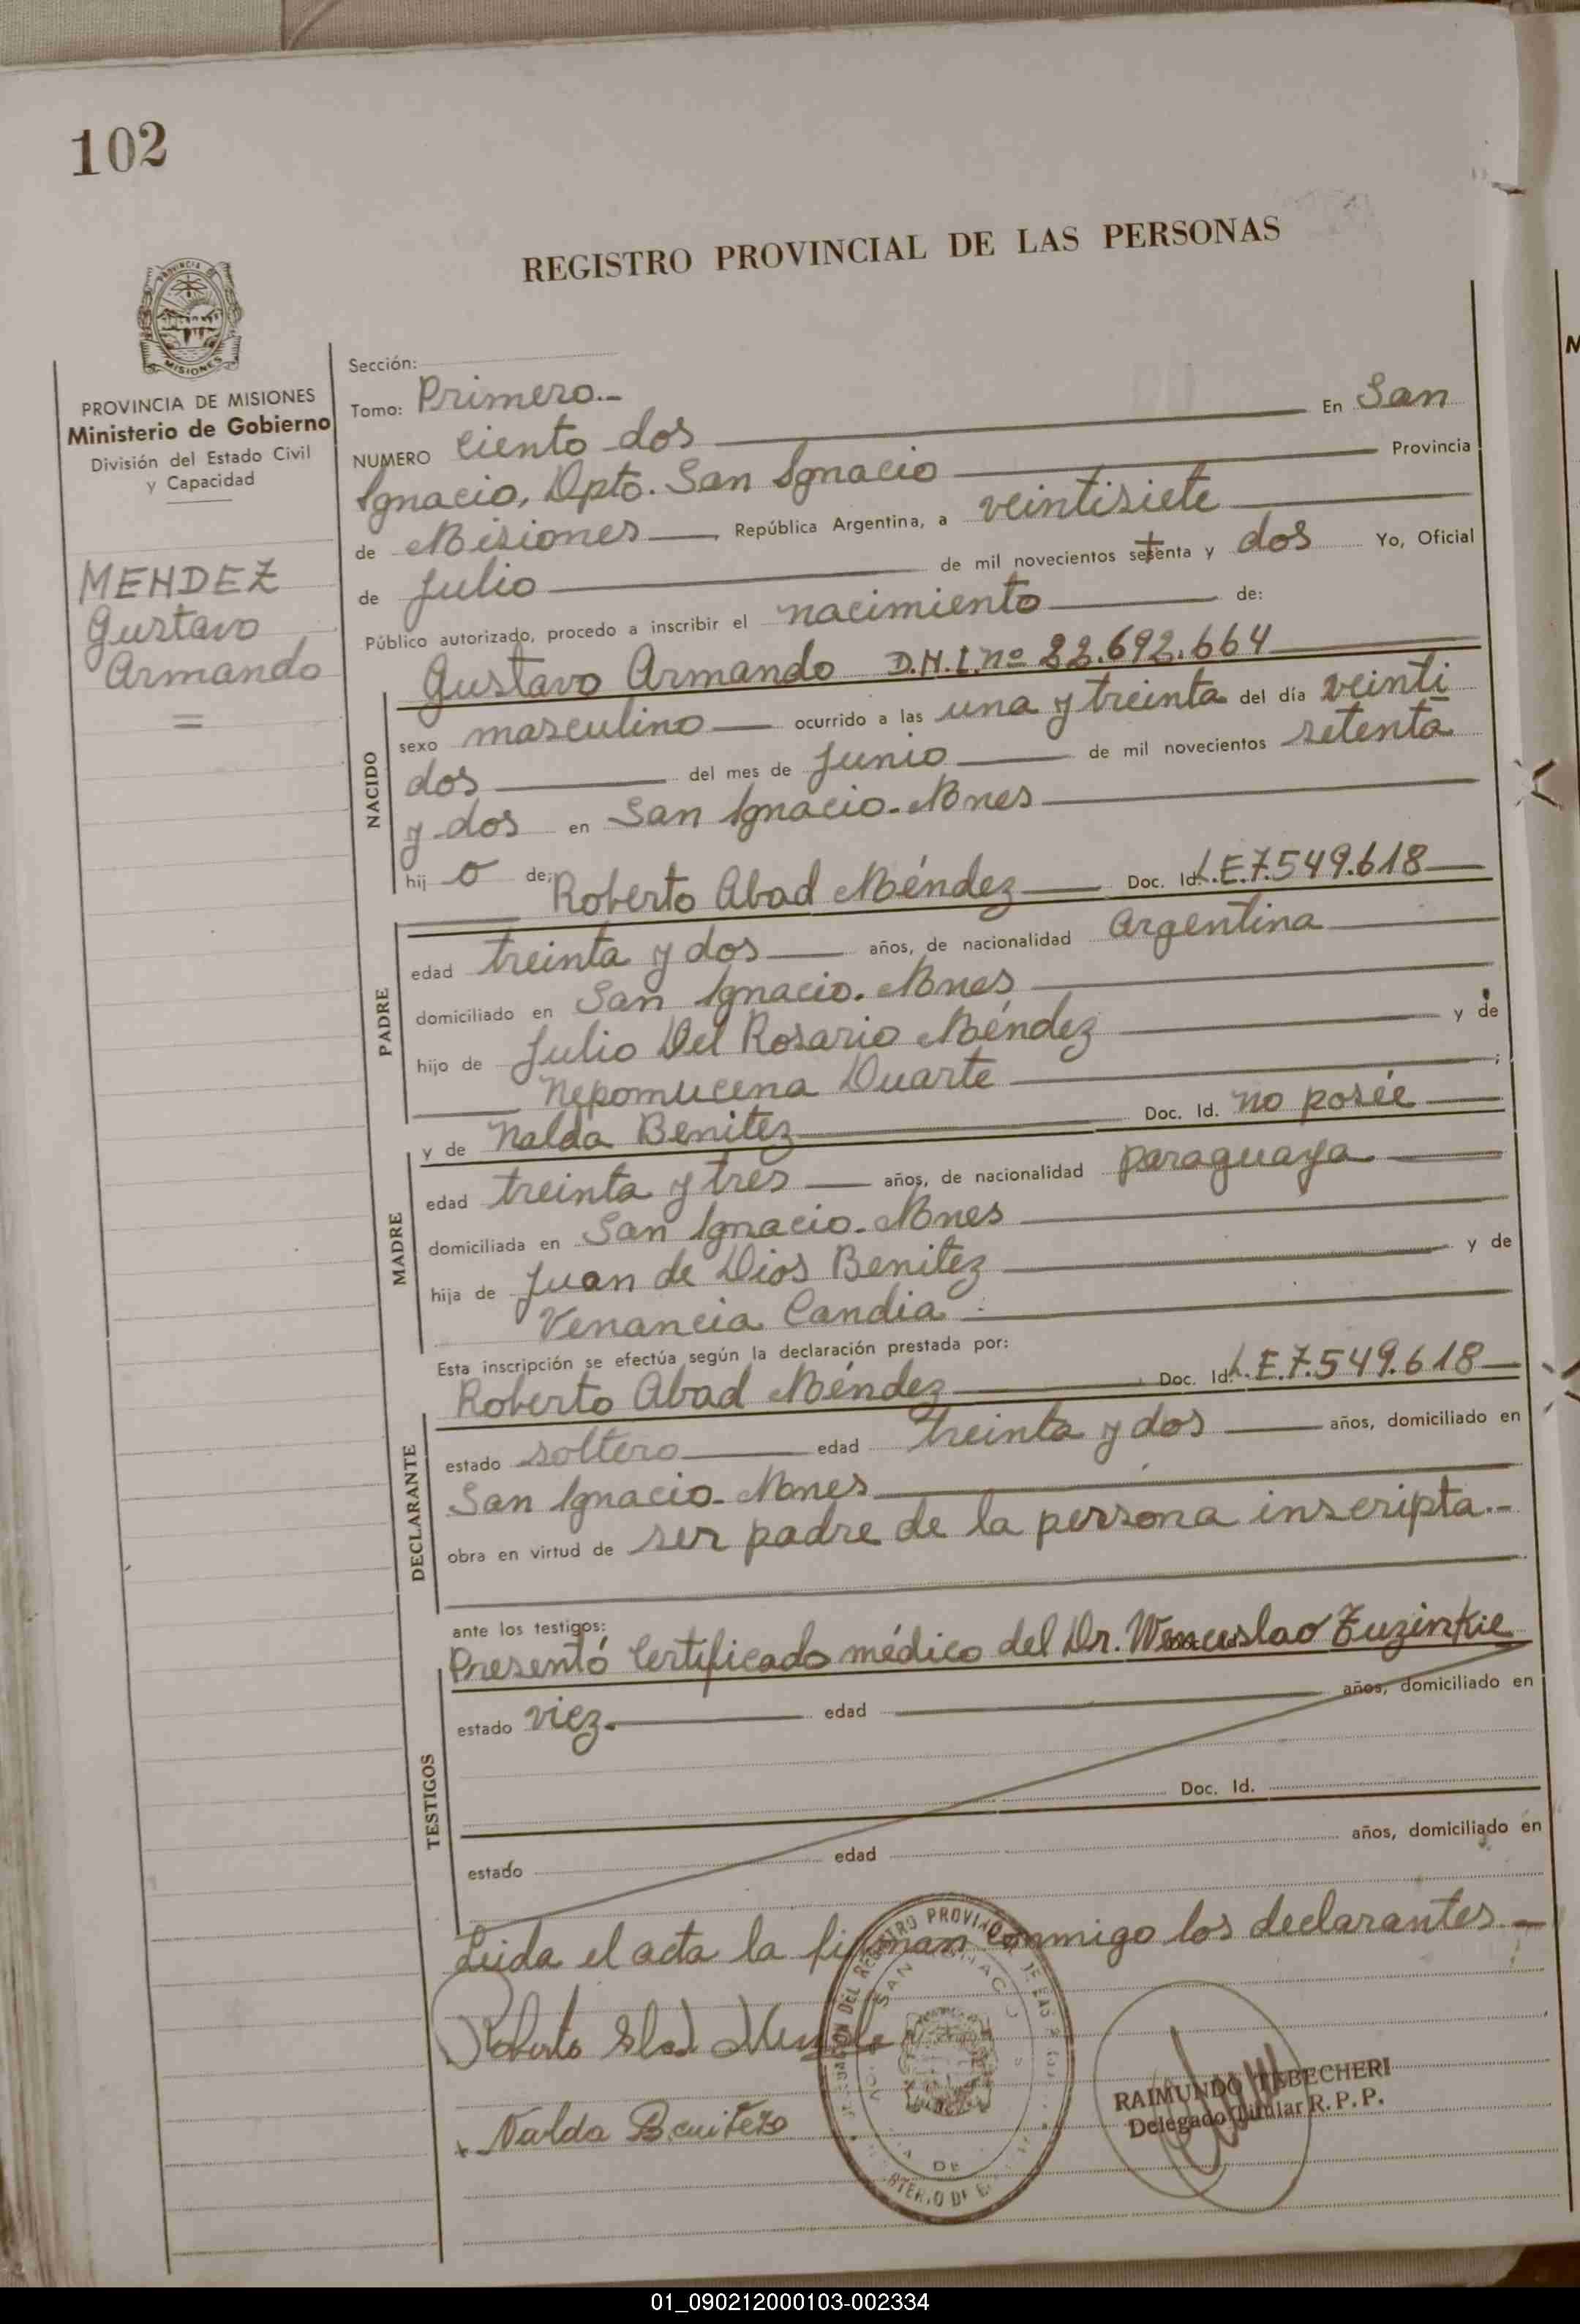 102
REGISTRO PROVINCIAL DE LAS PERSONAS
PROVINCIA DE MISIONES
Ministerio de Gobierno
División del Estado Civil
y Capacidad
MENDEZ
Gustavo
Armando
=
Sección:
Tomo: Primero.-
NUMERO Ciento dos En San
Ignacio, Dpto. San Ignacio Provincia
de Misiones República Argentina, a veintisiete
de Julio de mil novecientos setenta y dos Yo, Oficial
Público autorizado, procedo a inscribir el nacimiento de:
Gustavo Armando D.N.I. nº 22.692.664
NACIDO
sexo masculino ocurrido a las una y treinta del día veinti
dos del mes de Junio de mil novecientos setenta
y dos en San Ignacio-Mnes
hij o de: Roberto Abad Méndez Doc. Id. L.E.7.549.618
PADRE
edad treinta y dos años, de nacionalidad Argentina
domiciliado en San Ignacio. Mnes
hijo de Julio Del Rosario Méndez y de
Nepomucena Duarte ;
y de Nalda Benitez Doc. Id. no posée
MADRE
edad treinta y tres años, de nacionalidad paraguaya
domiciliada en San Ignacio-Mnes
hija de Juan de Dios Benitez y de
Venancia Candia
Esta inscripción se efectúa según la declaración prestada por:
Roberto Abad Méndez Doc. Id. L.E.7.549.618
DECLARANTE
estado soltero edad treinta y dos años, domiciliado en
San Ignacio-Mnes
obra en virtud de ser padre de la persona inscripta.-
ante los testigos:
Presentó Certificado médico del Dr. Wenceslao Zuzinkie
TESTIGOS
estado viez. edad años, domiciliado en
Doc. Id.
estado edad años, domiciliado en
Leida el acta la firman conmigo los declarantes
Roberto Abad Mendez
Nalda Benitez
RAIMUNDO
Delegado Titular R. P. P.
01_090212000103-002334